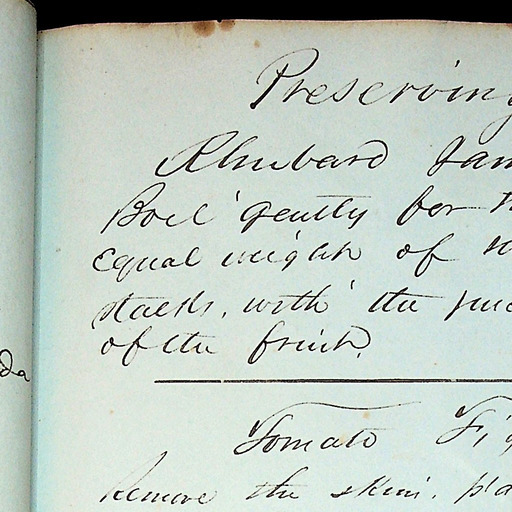 Preserving
Rhubard Jam
Boil gently for
Equal weight of
stalks, with the
of the fruit.
da
Tomato Fig
Remove the skin, pla